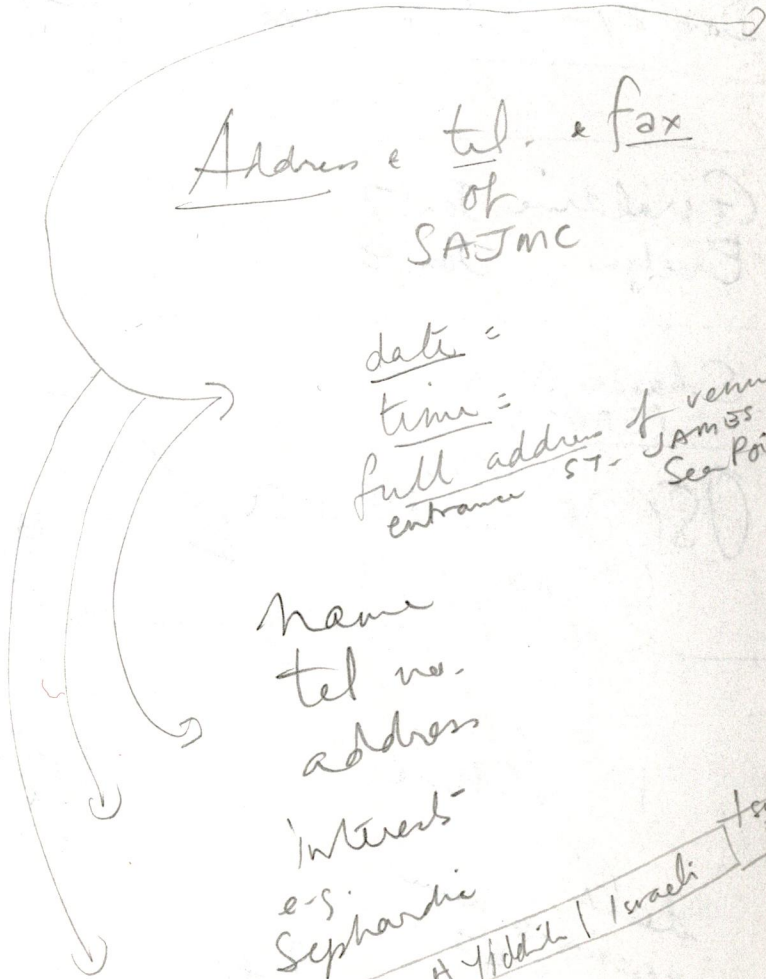 Address & tel. & fax
of
SAJMC
date =
time =
full address of venu
entrance ST. JAMES
Sea Poi
name
tel no.
address
interests
e.g.
Sephardic
Yiddish | Israeli